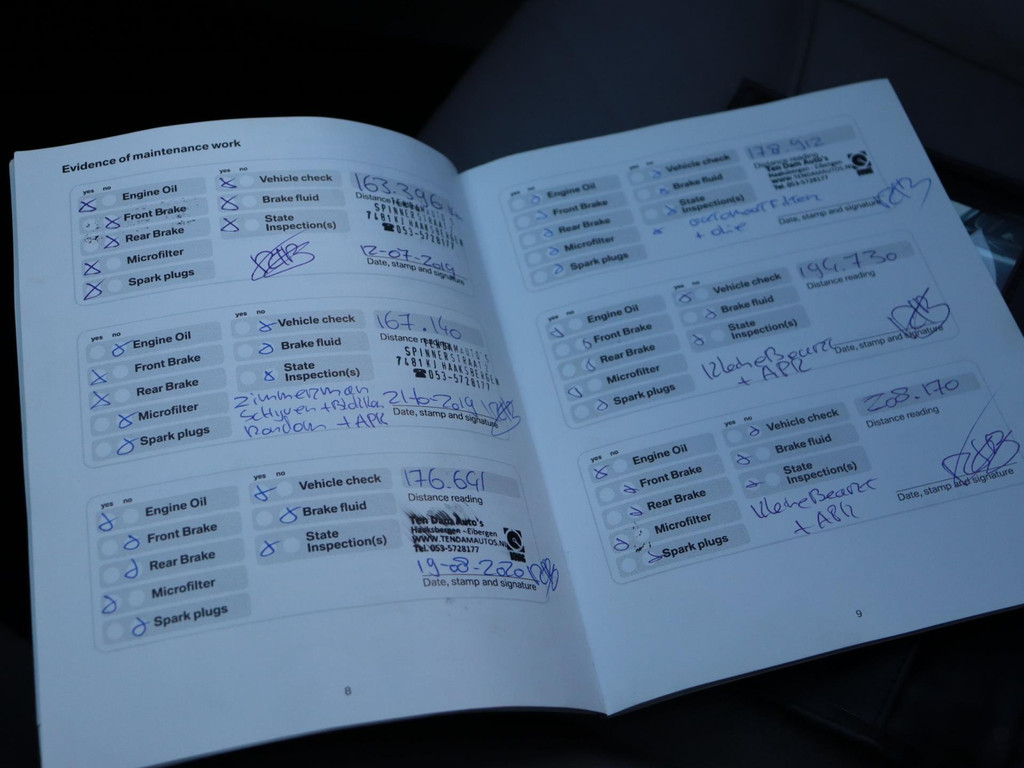 Evidence of maintenance work
yes no
Engine Oil
Front Brake
Rear Brake
Microfilter
Spark plugs
yes no
Vehicle check
Brake fluid
State
Inspection(s)
163.396
Distance reading
SPINNERSTRAAT
7481KJ HAAKSBERGEN
☎053-5728177
12-07-2019
Date, stamp and signature
yes no
Engine Oil
Front Brake
Rear Brake
Microfilter
Spark plugs
yes no
Vehicle check
Brake fluid
State
Inspection(s)
Zimmerman
Schijven + Blokken
Rondom + APK
167.140
Distance reading
SPINNERSTRAAT
7481KJ HAAKSBERGEN
☎053-5728177
Date, stamp and signature
yes no
Engine Oil
Front Brake
Rear Brake
Microfilter
Spark plugs
yes no
Vehicle check
Brake fluid
State
Inspection(s)
176.691
Distance reading
Ten Dam Auto's
Haaksbergen - Eibergen
WWW.TENDAMAUTOS.NL
Tel. 053-5728177
19-08-2020
Date, stamp and signature
8
yes no
Engine Oil
Front Brake
Rear Brake
Microfilter
Spark plugs
yes no
Vehicle check
Brake fluid
State
Inspection(s)
+ olie
178.912
Distance reading
Ten Dam Auto's
Haaksbergen - Eibergen
WWW.TENDAMAUTOS.NL
Tel. 053-5728177
Date, stamp and signature
yes no
Engine Oil
Front Brake
Rear Brake
Microfilter
Spark plugs
yes no
Vehicle check
Brake fluid
State
Inspection(s)
Kleine Beurt
+ APK
194.730
Distance reading
Date, stamp and signature
yes no
Engine Oil
Front Brake
Rear Brake
Microfilter
Spark plugs
yes no
Vehicle check
Brake fluid
State
Inspection(s)
Kleine Beurt
+ APK
208.170
Distance reading
Date, stamp and signature
9